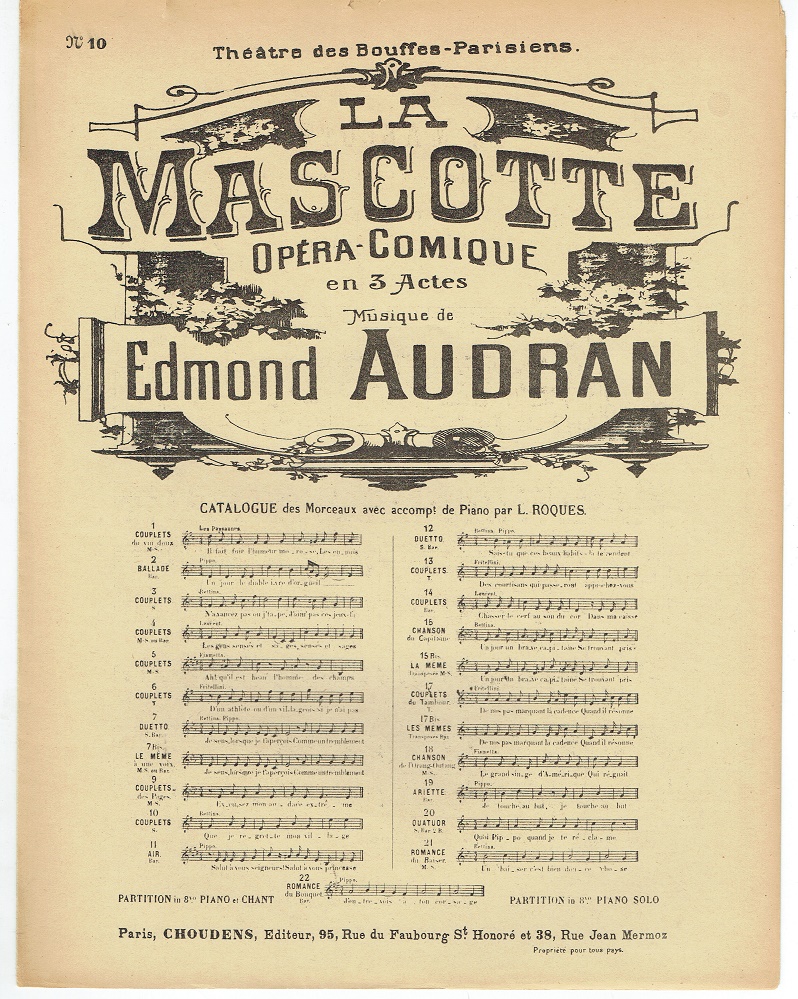 Nº 10
Théâtre des Bouffes-Parisiens.
LA
MASCOTTE
OPÉRA-COMIQUE
en 3 Actes
Musique de
Edmond AUDRAN
CATALOGUE des Morceaux avec accompt de Piano par L. ROQUES.
1
COUPLETS
du vin doux
M-S.
Les Paysannes.
Il faut fuir l'humeur mo_ro_se, Les en_nuis
2
BALLADE
Bar.
Pippo.
Un jour le diable ivre d'or_gueil
3
COUPLETS
S.
Bettina.
N'a avancez pas ou j'ta_pe, d'aim' pas ces jeux-l:
4
COUPLETS
M-S ou Bar.
Laurent.
Les gens sensés et sa_ges, sensés et sages
5
COUPLETS
M-S.
Fiametta.
Ah! qu'il est beau! l'homme des champs
6
COUPLETS
T.
Fritellini.
D'un athlète ou d'un vil_la_geois si je n'ai pas
7
DUETTO
S. Bar.
Bettina. Pippo.
Je sens, lorsque je t'aperçois Comme un tremblement
7 Bis.
LE MÊME
à une voix.
M-S. ou Bar.
Je sens, lorsque je t'aperçois Comme un tremblement
9
COUPLETS
des Pages.
M-S.
Ex_cu_sez mon au_dace ex_trê_me
10
COUPLETS
S.
Bettina.
Que je re_gret_te mon vil_la_ge
11
AIR.
Bar.
Pippo.
Salut à vous seigneurs! Salut à vous princesse
12
DUETTO.
S. Bar.
Bettina. Pippo.
Sais-tu que ces beaux habits-là te rendent
13
COUPLETS.
T.
Fritellini.
Des courtisans qui passe_ront approchez-vous
14
COUPLETS
Bar.
Laurent.
Chasser le cerf au son du cor Dans ma caisse
15
CHANSON
du Capitaine
Bettina.
Un jour un bra_ve ca_pi_taine Se trouvant pris
15 Bis.
LA MÊME
Transposée M-S.
Un jour un bra_ve ca_pi_taine Se trouvant pris
17
COUPLETS
du Tambour.
T.
Fritellini.
De nos pas marquant la cadence Quand il résonne
17 Bis
LES MÊMES
De nos pas marquant la cadence Quand il résonne
18
CHANSON
de l'Orang-Outang
M-S.
Fiametta.
Le grand sin_ge d'A_mé_ri_que Qui ré_gnait
19
ARIETTE.
Bar.
Pippo.
Je touche au but, je touche au but
20
QUATUOR
S. Bar 2 B.
Quoi Pip_po quand je te ré_cla_me
21
ROMANCE
du Baiser.
M-S.
Un bai_ser c'est bien dou_ce cho_se
22
ROMANCE
du Bouquet
Bar.
Pippo.
j'en_tre_vois à ton cor_sa_ge
PARTITION in 8vo PIANO et CHANT
PARTITION in 8vo PIANO SOLO
Paris, CHOUDENS, Editeur, 95, Rue du Faubourg St Honoré et 38, Rue Jean Mermoz
Propriété pour tous pays.